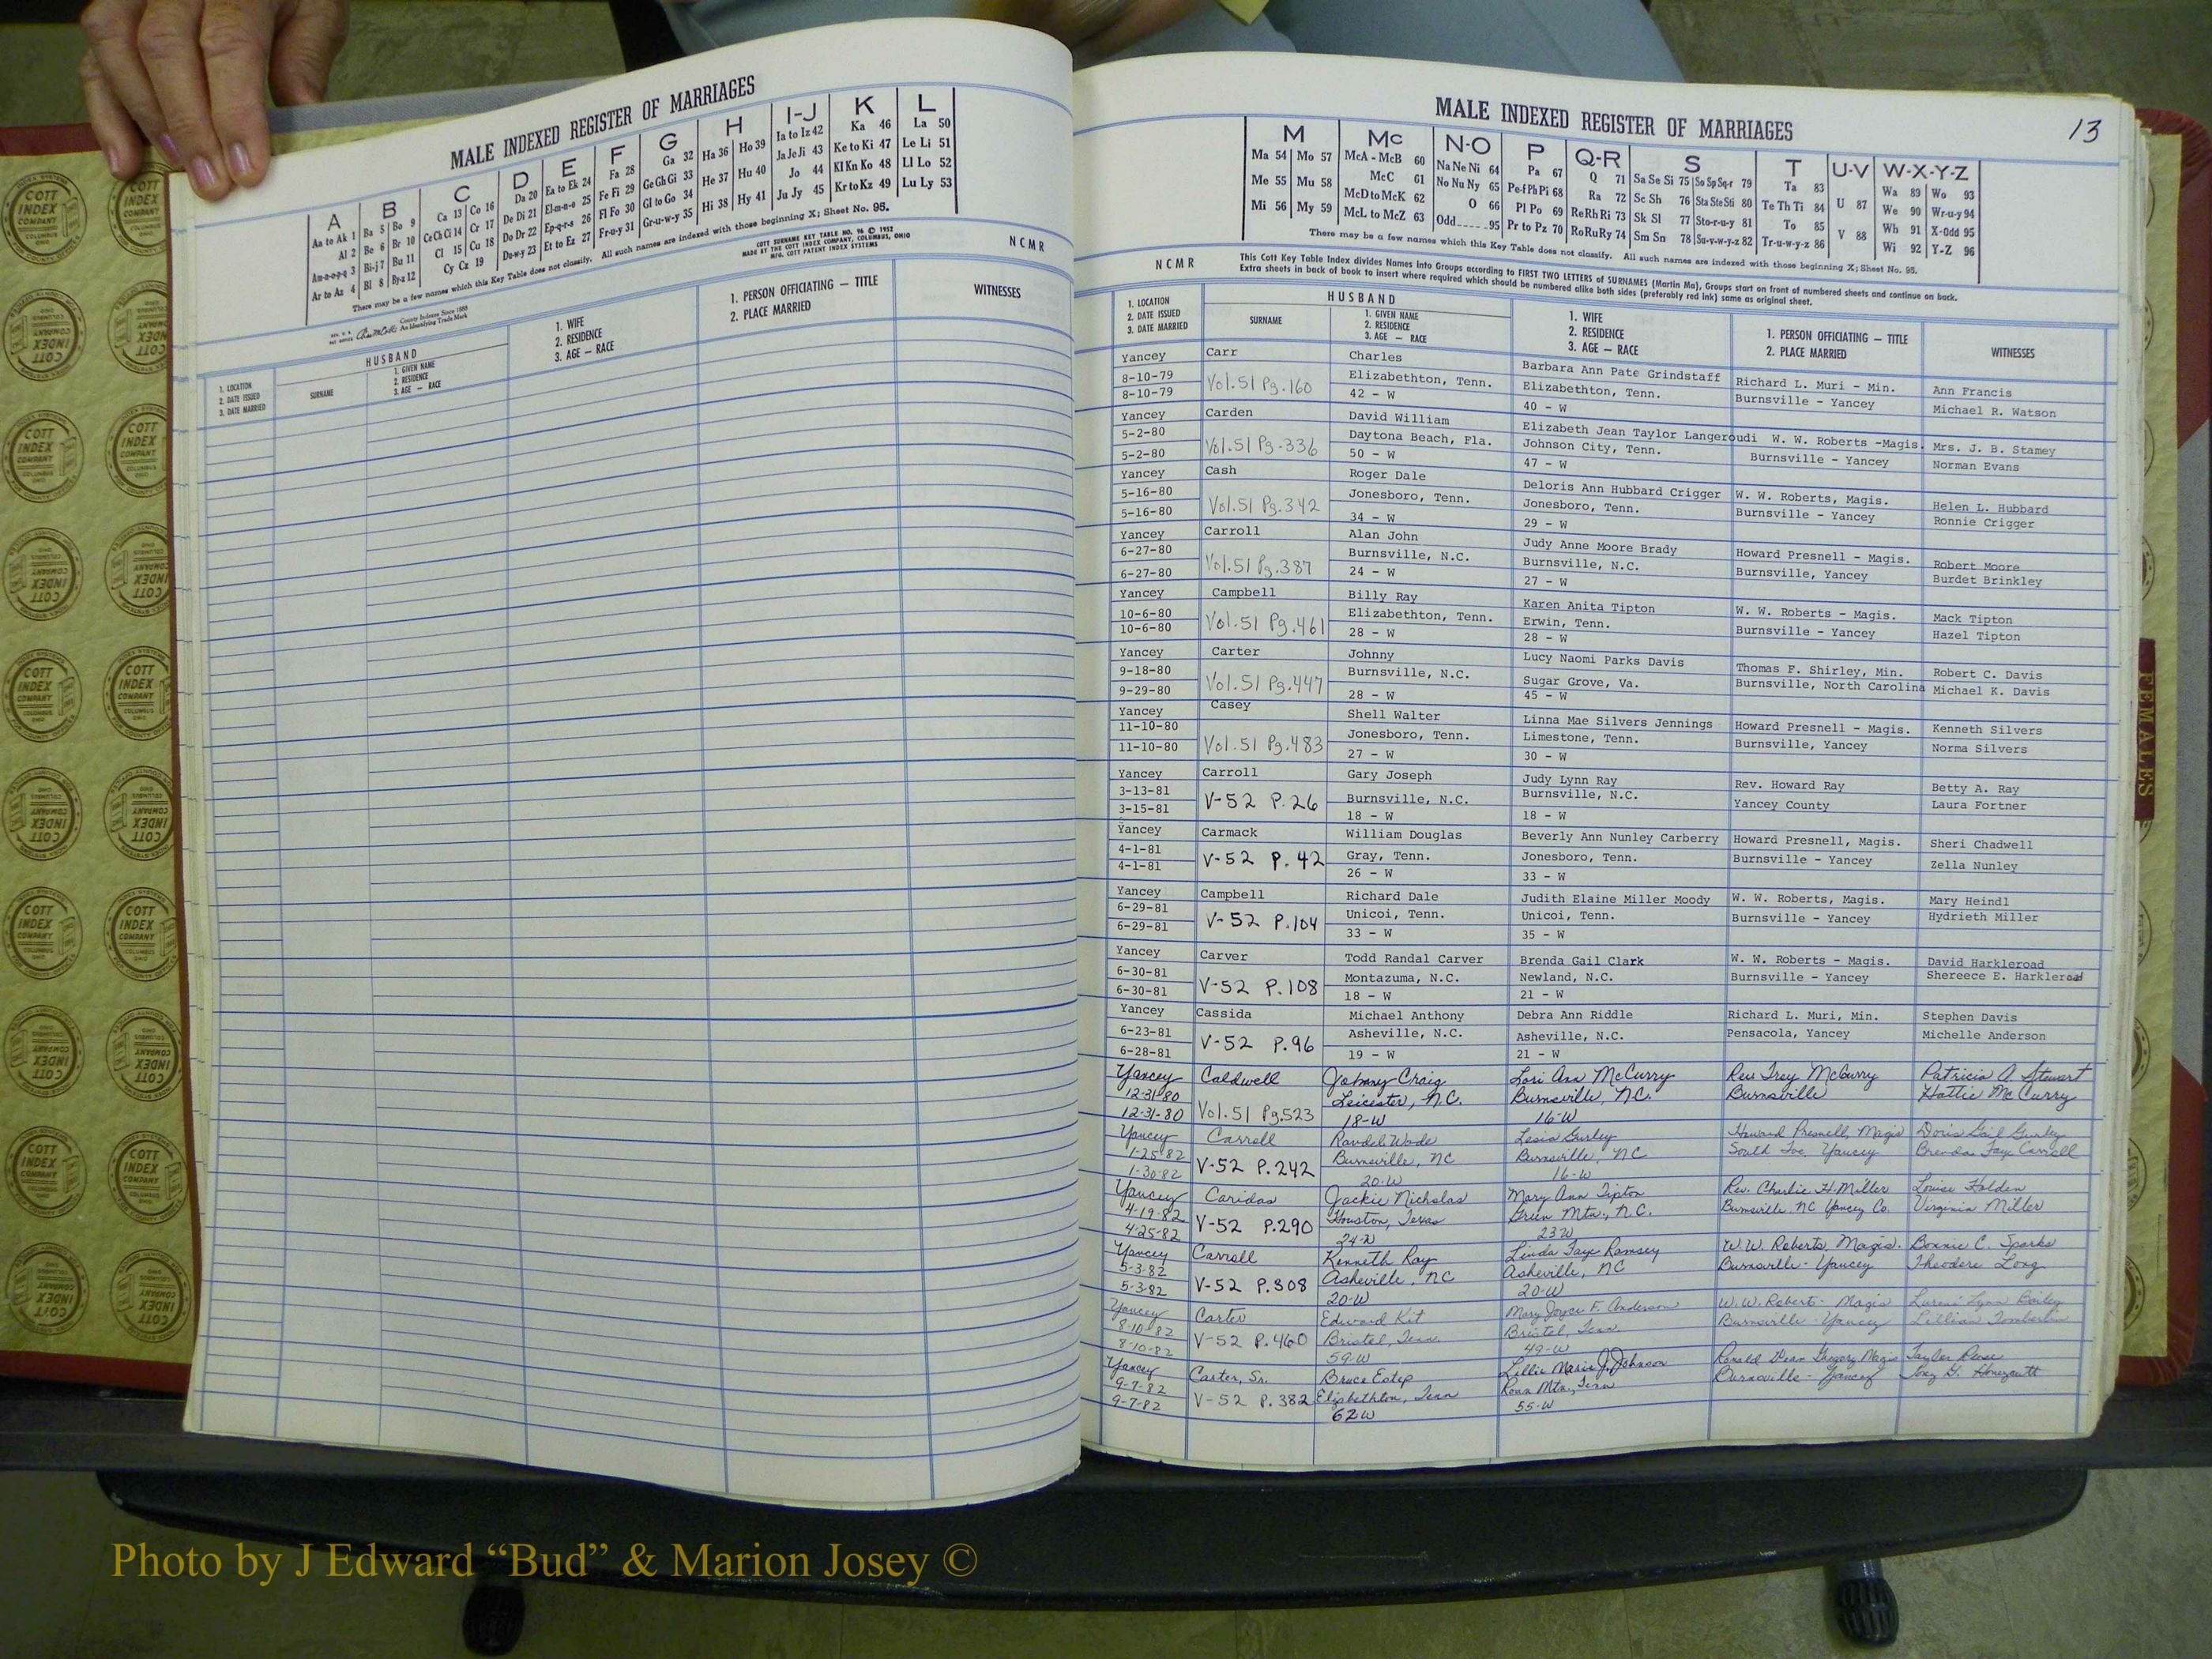 MALE INDEXED REGISTER OF MARRIAGES
A B C D E F G H I-J K L
Aa to Ak 1 Ba 5 Bo 9 Ca 13 Co 16 Da 20 Ea to Ek 24 Fa 28 Ga 32 Ha 36 Ho 39 Ia to Iz 42 Ka 46 La 50
Al 2 Be 6 Br 10 Ce Ch Ci 14 Cr 17 De Di 21 El-m-n-o 25 Fe Fi 29 Ge Gh Gi 33 He 37 Hu 40 Ja Je Ji 43 Ke to Ki 47 Le Li 51
Am-n-o-p-q 3 Bi-j 7 Bu 11 Cl 15 Cu 18 Do Dr 22 Ep-q-r-s 26 Fl Fo 30 Gl to Go 34 Hi 38 Hy 41 Jo 44 Kl Kn Ko 48 Ll Lo 52
Ar to Az 4 Bl 8 By-z 12 Cy Cz 19 Du-w-y 23 Et to Ez 27 Fr-u-y 31 Gr-u-w-y 35 Ju Jy 45 Kr to Kz 49 Lu Ly 53
There may be a few names which this Key Table does not classify. All such names are indexed with those beginning X; Sheet No. 95.
COTT SURNAME KEY TABLE NO. 96 © 1952
MADE BY THE COTT INDEX COMPANY, COLUMBUS, OHIO
MFG. COTT PATENT INDEX SYSTEMS
County Indexes Since 1888
An Identifying Trade Mark
NCMR
1. LOCATION
2. DATE ISSUED
3. DATE MARRIED
HUSBAND
SURNAME
1. GIVEN NAME
2. RESIDENCE
3. AGE — RACE
1. WIFE
2. RESIDENCE
3. AGE — RACE
1. PERSON OFFICIATING — TITLE
2. PLACE MARRIED
WITNESSES
MALE INDEXED REGISTER OF MARRIAGES
13
M Mc N-O P Q-R S T U-V W-X-Y-Z
Ma 54 Mo 57 McA - McB 60 Na Ne Ni 64 Pa 67 Q 71 Sa Se Si 75 So Sp Sq-r 79 Ta 83 U 87 Wa 89 Wo 93
Me 55 Mu 58 McC 61 No Nu Ny 65 Pe-f Ph Pi 68 Ra 72 Sc Sh 76 Sta Ste Sti 80 Te Th Ti 84 V 88 We 90 Wr-u-y 94
Mi 56 My 59 McD to McK 62 O 66 Pl Po 69 Re Rh Ri 73 Sk Sl 77 Sto-r-u-y 81 To 85 Wh 91 X-Odd 95
McL to McZ 63 Odd 95 Pr to Pz 70 Ro Ru Ry 74 Sm Sn 78 Su-v-w-y-z 82 Tr-u-w-y-z 86 Wi 92 Y-Z 96
There may be a few names which this Key Table does not classify. All such names are indexed with those beginning X; Sheet No. 95.
This Cott Key Table Index divides Names into Groups according to FIRST TWO LETTERS of SURNAMES (Martin Ma), Groups start on front of numbered sheets and continue on back.
Extra sheets in back of book to insert where required which should be numbered alike both sides (preferably red ink) same as original sheet.
NCMR
1. LOCATION
2. DATE ISSUED
3. DATE MARRIED
HUSBAND
SURNAME
1. GIVEN NAME
2. RESIDENCE
3. AGE — RACE
1. WIFE
2. RESIDENCE
3. AGE — RACE
1. PERSON OFFICIATING — TITLE
2. PLACE MARRIED
WITNESSES
Yancey Carr Charles Barbara Ann Pate Grindstaff Richard L. Muri - Min. Ann Francis
8-10-79 Vol.51 Pg.160 Elizabethton, Tenn. Elizabethton, Tenn. Burnsville - Yancey Michael R. Watson
8-10-79 42 - W 40 - W
Yancey Carden David William Elizabeth Jean Taylor Langeroudi W. W. Roberts -Magis. Mrs. J. B. Stamey
5-2-80 Vol.51 Pg-336 Daytona Beach, Fla. Johnson City, Tenn. Burnsville - Yancey Norman Evans
5-2-80 50 - W 47 - W
Yancey Cash Roger Dale Deloris Ann Hubbard Crigger W. W. Roberts, Magis. Helen L. Hubbard
5-16-80 Vol.51 Pg.342 Jonesboro, Tenn. Jonesboro, Tenn. Burnsville - Yancey Ronnie Crigger
5-16-80 34 - W 29 - W
Yancey Carroll Alan John Judy Anne Moore Brady Howard Presnell - Magis. Robert Moore
6-27-80 Vol.51 Pg.387 Burnsville, N.C. Burnsville, N.C. Burnsville, Yancey Burdet Brinkley
6-27-80 24 - W 27 - W
Yancey Campbell Billy Ray Karen Anita Tipton W. W. Roberts - Magis. Mack Tipton
10-6-80 Vol.51 Pg.461 Elizabethton, Tenn. Erwin, Tenn. Burnsville - Yancey Hazel Tipton
10-6-80 28 - W 28 - W
Yancey Carter Johnny Lucy Naomi Parks Davis Thomas F. Shirley, Min. Robert C. Davis
9-18-80 Vol.51 Pg.447 Burnsville, N.C. Sugar Grove, Va. Burnsville, North Carolina Michael K. Davis
9-29-80 28 - W 45 - W
Yancey Casey Shell Walter Linna Mae Silvers Jennings Howard Presnell - Magis. Kenneth Silvers
11-10-80 Vol.51 Pg.483 Jonesboro, Tenn. Limestone, Tenn. Burnsville, Yancey Norma Silvers
11-10-80 27 - W 30 - W
Yancey Carroll Gary Joseph Judy Lynn Ray Rev. Howard Ray Betty A. Ray
3-13-81 V-52 P.26 Burnsville, N.C. Burnsville, N.C. Yancey County Laura Fortner
3-15-81 18 - W 18 - W
Yancey Carmack William Douglas Beverly Ann Nunley Carberry Howard Presnell, Magis. Sheri Chadwell
4-1-81 V-52 P.42 Gray, Tenn. Jonesboro, Tenn. Burnsville - Yancey Zella Nunley
4-1-81 26 - W 33 - W
Yancey Campbell Richard Dale Judith Elaine Miller Moody W. W. Roberts, Magis. Mary Heindl
6-29-81 V-52 P.104 Unicoi, Tenn. Unicoi, Tenn. Burnsville - Yancey Hydrieth Miller
6-29-81 33 - W 35 - W
Yancey Carver Todd Randal Carver Brenda Gail Clark W. W. Roberts - Magis. David Harkleroad
6-30-81 V-52 P.108 Montazuma, N.C. Newland, N.C. Burnsville - Yancey Shereece E. Harkleroad
6-30-81 18 - W 21 - W
Yancey Cassida Michael Anthony Debra Ann Riddle Richard L. Muri, Min. Stephen Davis
6-23-81 V-52 P.96 Asheville, N.C. Asheville, N.C. Pensacola, Yancey Michelle Anderson
6-28-81 19 - W 21 - W
Yancey Caldwell Johnny Craig Lori Ann McCurry Rev. Trey McCurry Patricia A. Stewart
12-31-80 Vol.51 Pg.523 Leicester, N.C. Burnsville, N.C. Burnsville Hattie McCurry
12-31-80 18-W 16-W
Yancey Carroll Randel Wade Lesia Gurley Howard Presnell, Magis Doris Gail Gurley
1-25-82 V-52 P.242 Burnsville, NC Burnsville, NC South Toe, Yancey Brenda Faye Carroll
1-30-82 20-W 16-W
Yancey Caridas Jackie Nicholas Mary Ann Tipton Rev. Charlie H. Miller Louise Holden
4-19-82 V-52 P.290 Houston, Texas Green Mtn., N.C. Burnsville, NC Yancey Co. Virginia Miller
4-25-82 24-W 23 W
Yancey Carroll Kenneth Ray Linda Faye Ramsey W.W. Roberts, Magis. Bonnie C. Sparks
5-3-82 V-52 P.308 Asheville, NC Asheville, NC Burnsville - Yancey Theodore Long
5-3-82 20-W 20-W
Yancey Carter Edward Kit Mary Joyce F. Anderson W.W. Roberts - Magis Lynn Bailey
8-10-82 V-52 P.460 Bristol, Tenn. Bristol, Tenn. Burnsville - Yancey Lillian Tomberlin
8-10-82 59-W 49-W
Yancey Carter, Sr. Bruce Estep Lillie Marie J. Johnson Ronald Dean Gregory, Magis Taylor
9-7-82 V-52 P.382 Elizabethton, Tenn Roan Mtn, Tenn Burnsville - Yancey Tony G. Honeycutt
9-7-82 62 W 55-W
FEMALES
COTT
INDEX
COMPANY
Photo by J Edward “Bud” & Marion Josey ©